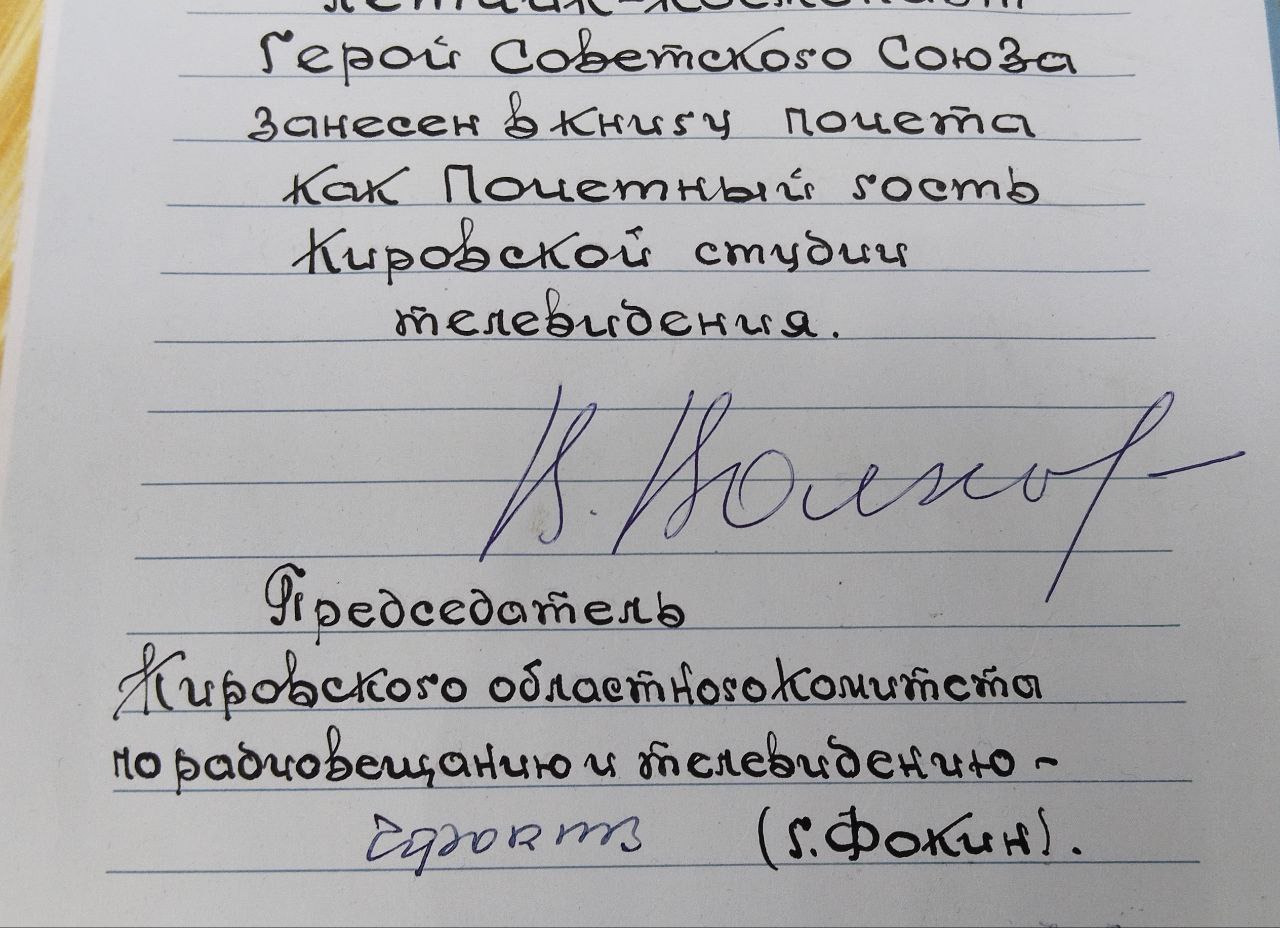 летчик-космонавт
Герой Советского Союза
занесен в книгу почета
как Почетный гость
Кировской студии
телевидения.
В. Волков
Председатель
Кировского областного комитета
по радиовещанию и телевидению -
(г. Фокин).